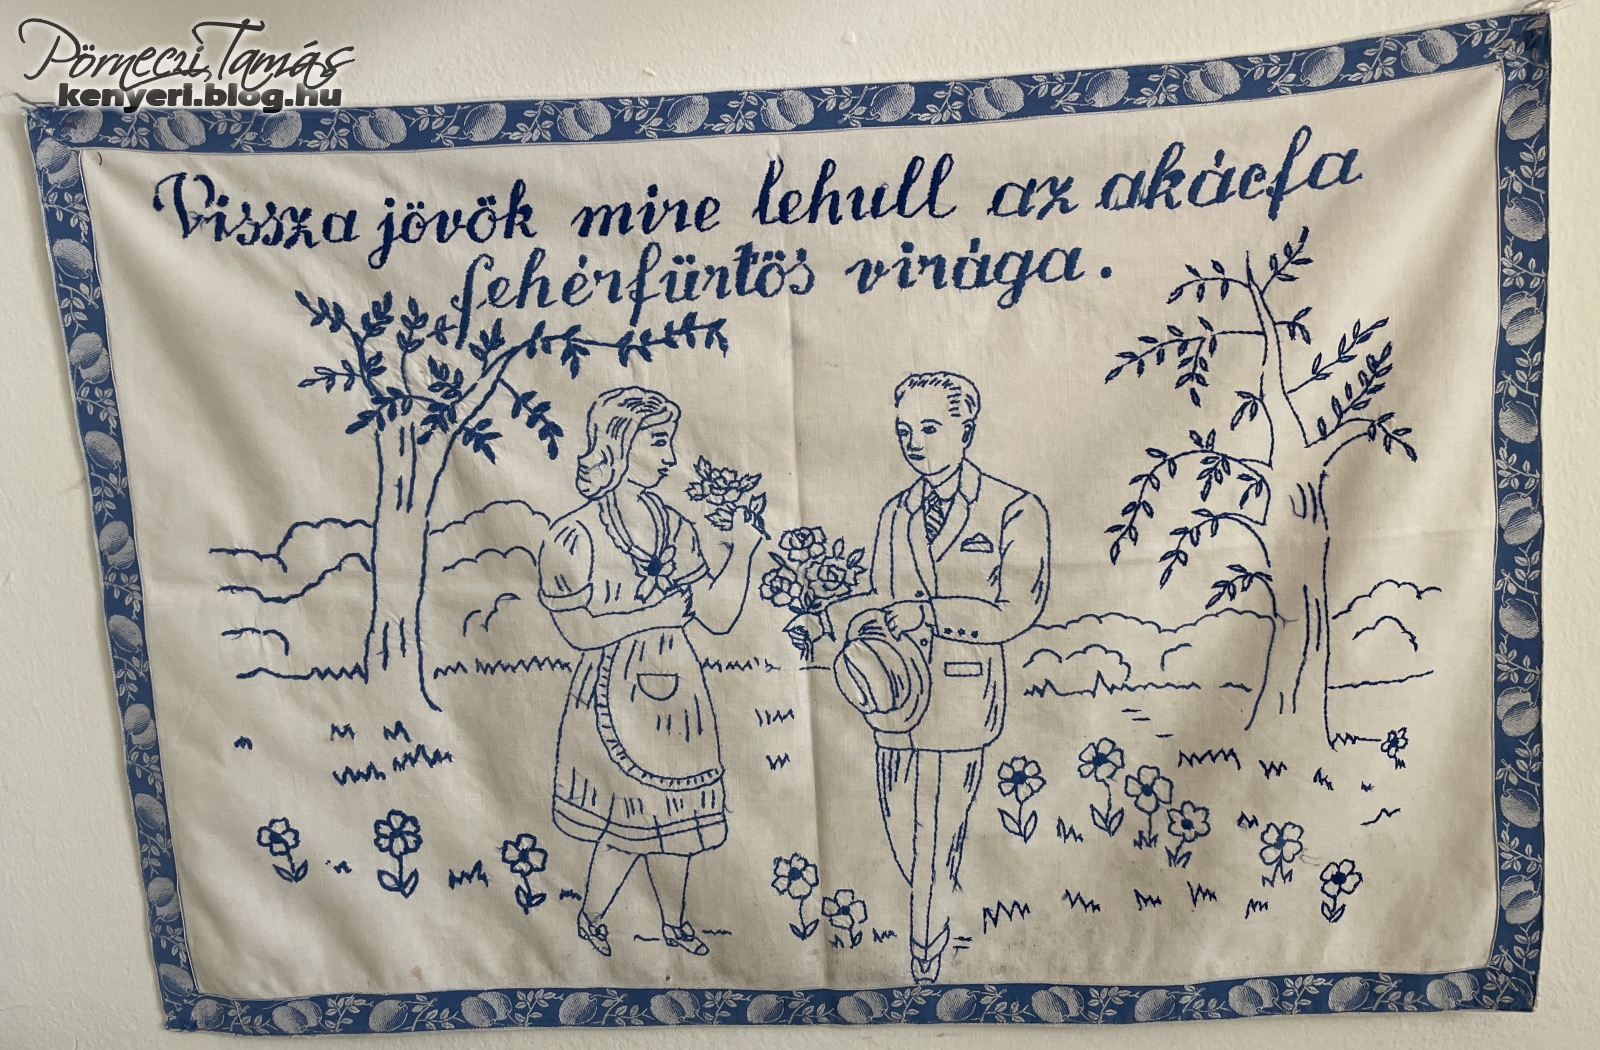 Pörneczi Tamás
kenyeri.blog.hu
Vissza jövök mire lehull az akácfa
fehérfürtös virága.